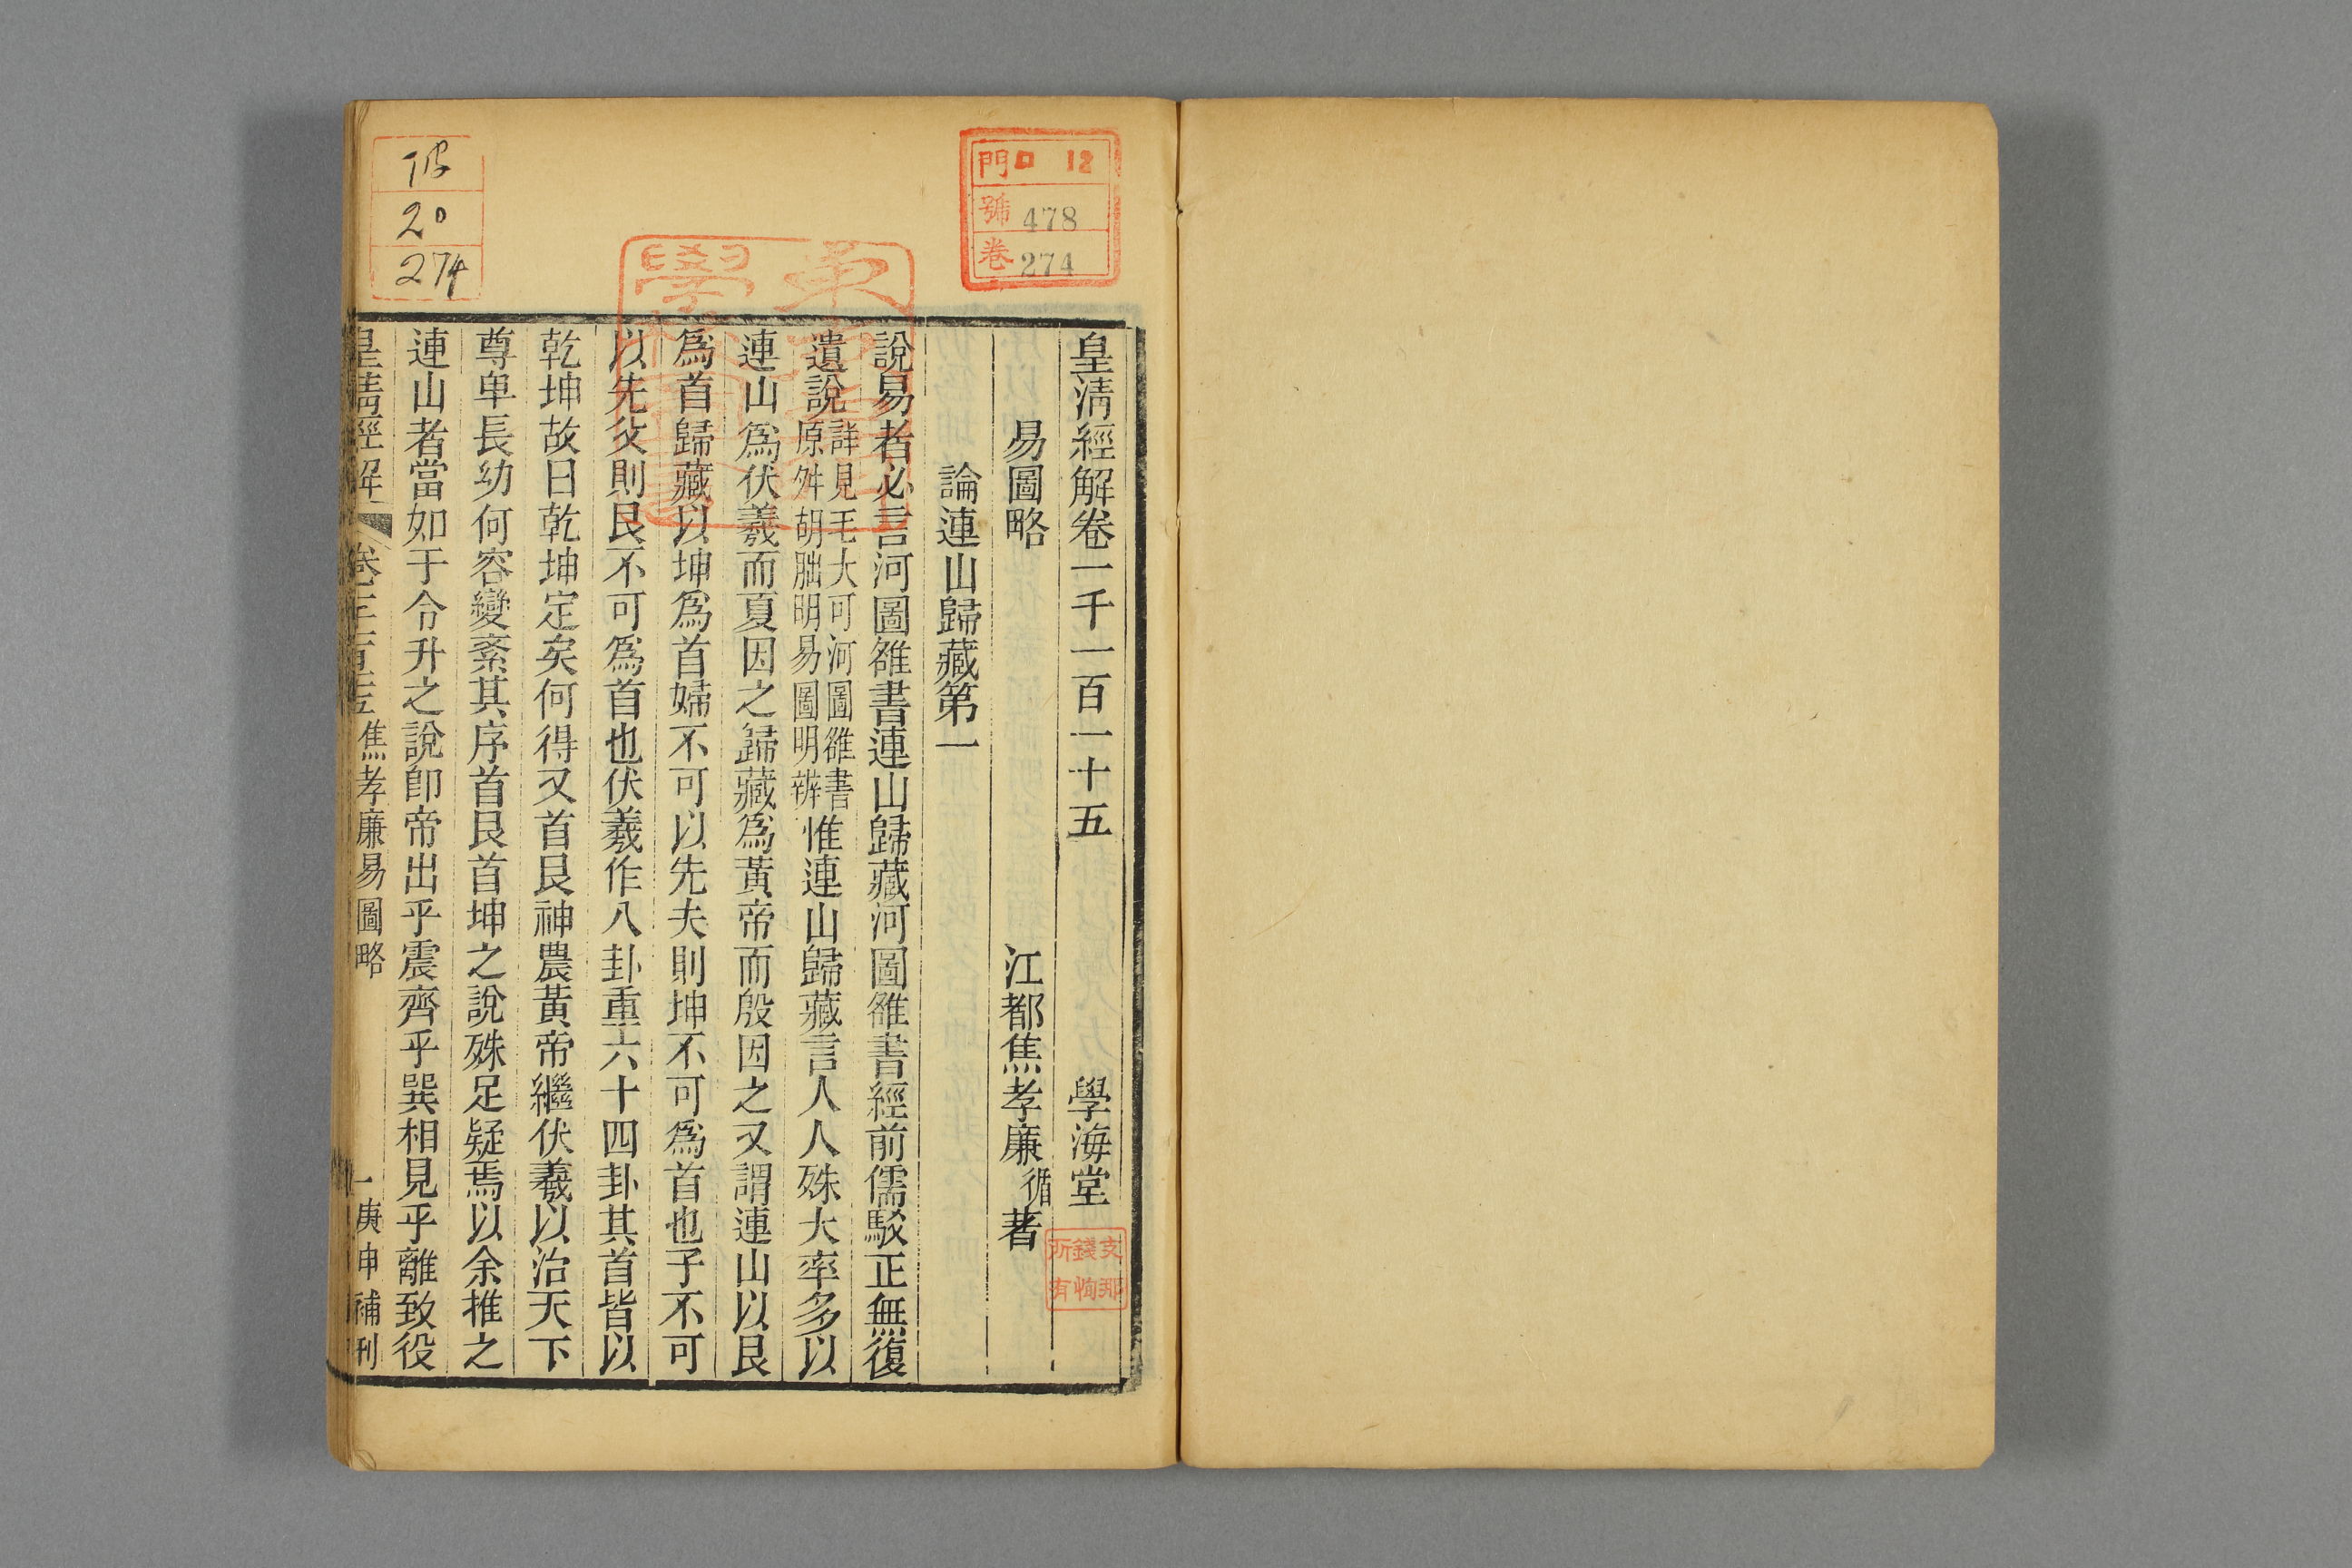 皇淸經解卷一千一百一十五 學海堂
易圖略 江都焦孝廉循著
論連山歸藏第一
說易者必言河圖雒書連山歸藏河圖雒書經前儒駁正無復
遺說詳見毛大可河圖雒書原舛胡朏明易圖明辨惟連山歸藏言人人殊大率多以
連山爲伏羲而夏因之歸藏爲黃帝而殷因之又謂連山以艮
爲首歸藏以坤爲首婦不可以先夫則坤不可爲首也子不可
以先父則艮不可爲首也伏羲作八卦重六十四卦其首皆以
乾坤故曰乾坤定矣何得又首艮神農黃帝繼伏羲以治天下
尊卑長幼何容變紊其序首艮首坤之說殊足疑焉以余推之
連山者當如于令升之說卽帝出乎震齊乎巽相見乎離致役
皇淸經解 焦孝廉易圖略 一 庚申補刊
門 口 12
號 478
卷 274
20
274
支那
錢恂
所有